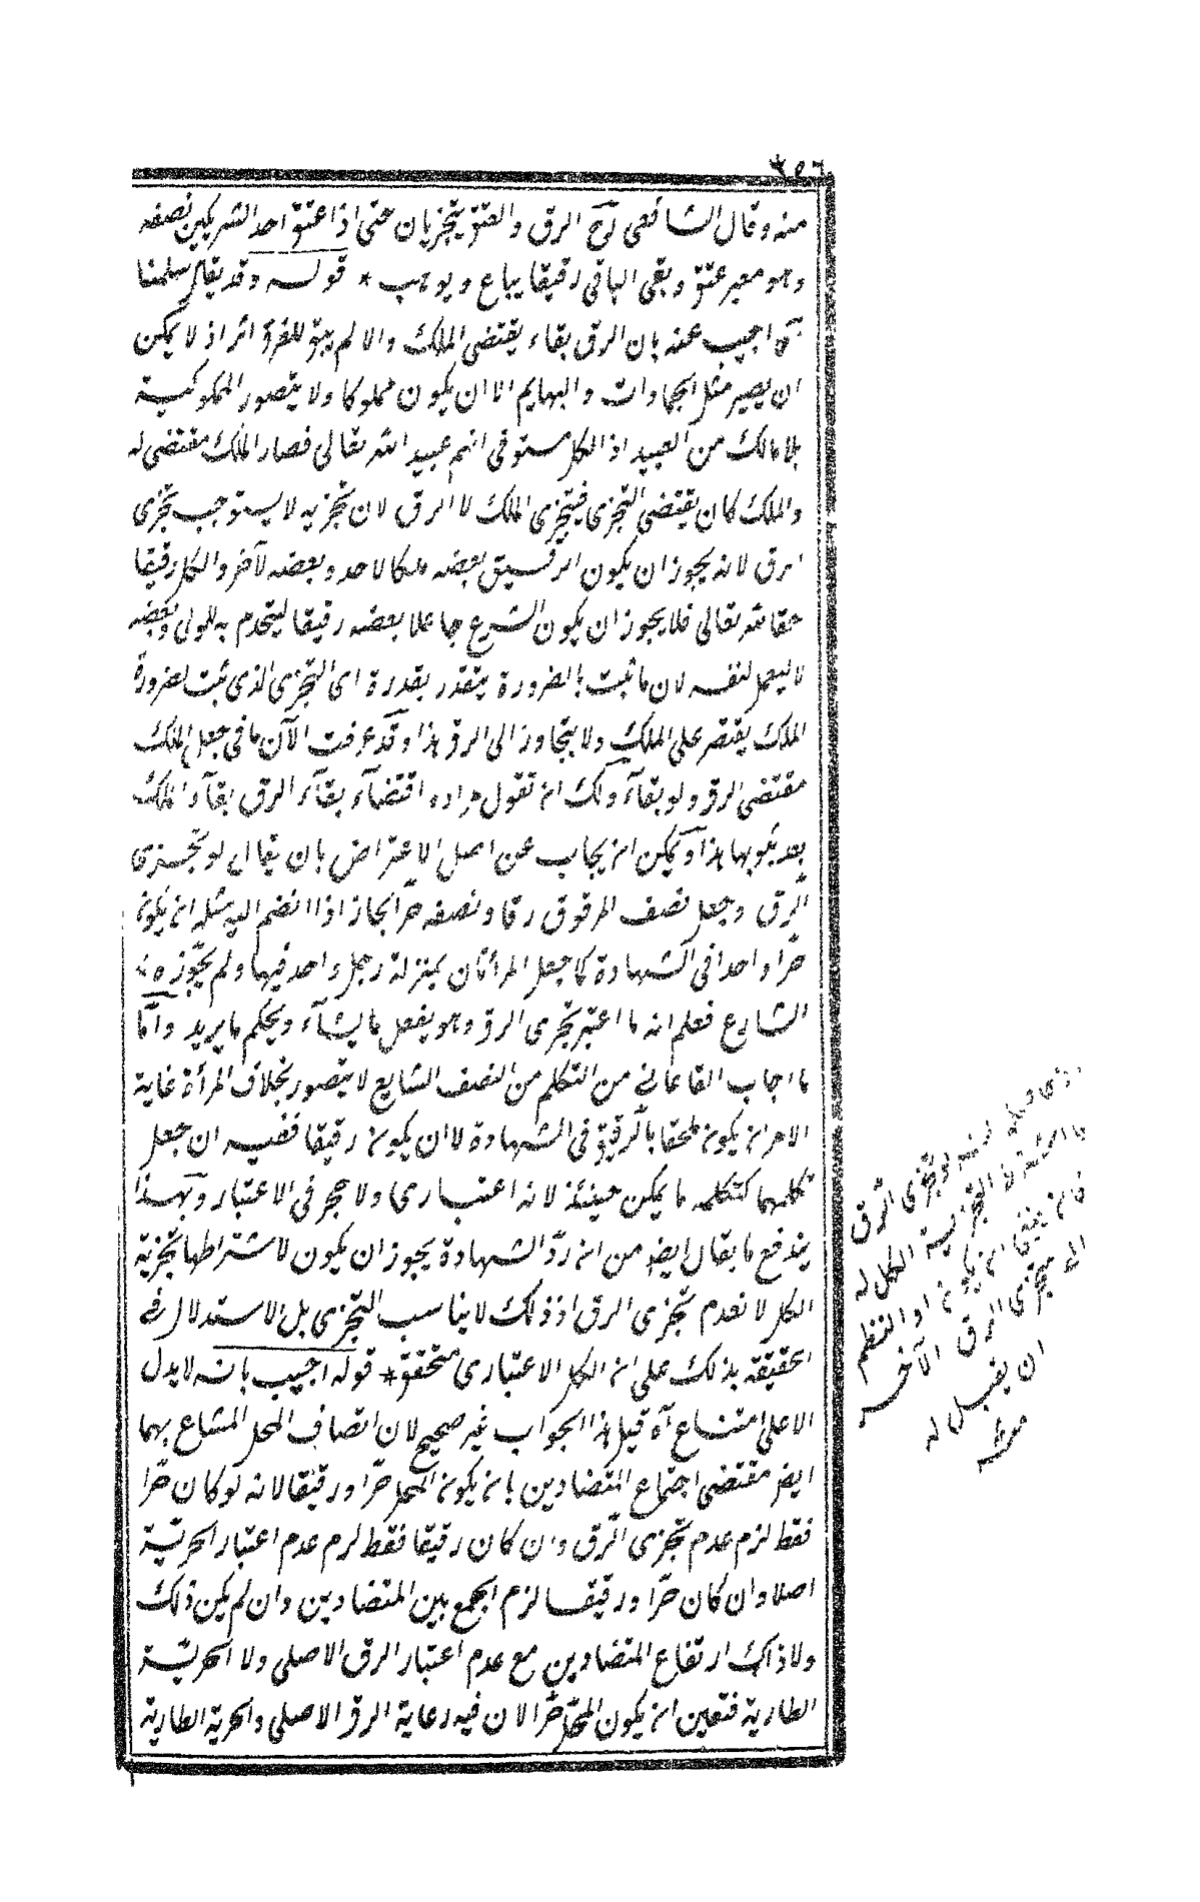 ٣٥٦
منه وقال الشافعى رح الرق والعتق يتجزيان حتى اذا اعتق احد الشريكين نصفه
وهو معسر عتق وبقى الباقى رقيقا يباع ويوهب * قوله وقد يقال سلمنا
آه اجيب عنه بان الرق بقاء يقتضى الملك والا لم يبق للغرة اثر اذ لا يمكن
ان يصير مثل الجمادات والبهايم الا ان يكون مملوكا ولا يتصور المملوكية
بلا مالك من العبيد اذ الكل مستو فى انهم عبيد الله تعالى فصار الملك مقتضى له
والملك كان يقتضى التجزى فيتجزى الملك لا الرق لان تجزيه لا يستوجب تجزى
الرق لانه يجوز ان يكون الرقيق بعضه ملكا لاحد وبعضه لآخر والكل رقيقا
حقا لله تعالى فلا يجوز ان يكون الشرع جاعلا بعضه رقيقا ليخدم به المولى وبعضه
لا ليعمل لنفسه لان ما ثبت بالضرورة يتقدر بقدرة اى التجزى الذى ثبت لضرورة
الملك يقتصر على الملك ولا يتجاوز الى الرق هذا وقد عرفت الآن ما فى جعل الملك
مقتضى الرق ولو بقآء ولك ان تقول مراده اقتضآء بقآء الرق بقآء الملك
بعد ثبوبها هذا ويمكن ان يجاب عن اصل الاعتراض بان يقال لو تجزى
الرق وجعل نصف المرقوق رقا ونصفه حرا لجاز اذا انضم اليه مثله ان يكون
حرا واحدا فى الشهادة كما جعل المرأتان بمنزلة رجل واحد فيها ولم يجوزه
الشارع فعلم انه ما اعتبر تجزى الرق وهو يفعل ما يشآء ويحكم ما يريد واما
ما اجاب القاعانى من التكلم من النصف الشايع لا يتصور بخلاف المرأة غاية
الامر ان يكون ملحقا بالرقيق فى الشهادة لا ان يكون رقيقا ففيه ان جعل
تكلمهما كتكلمه ما يمكن حينئذ لانه اعتبارى ولا حجر فى الاعتبار وبهذا
يندفع ما يقال ايضا من ان رد الشهادة يجوز ان يكون لاشتراطها تجزية
الكل لا نعدم تجزى الرق اذ ذلك لا يناسب التجزى بل الاستدلال فى
الحقيقة بذلك على ان الكل الاعتبارى متحقق * قوله اجيب بانه لا يدل
الا على امتناع آه قيل هذا الجواب غير صحيح لان اتصاف المحل المشاع بهما
ايضا مقتضى اجتماع المتضادين بان يكون المحل حرا ورقيقا لانه لو كان حرا
فقط لزم عدم تجزى الرق وان كان رقيقا فقط لزم عدم اعتبار الحرية
اصلا وان كان حرا ورقيقا لزم الجمع بين المتضادين وان لم يكن ذلك
ولا ذاك ارتفاع المتضادين مع عدم اعتبار الرق الاصلى ولا الحرية
الطارية فتعين ان يكون المحل حرا لان فيه رعاية الرق الاصلى والحرية الطارية
لو تجزى الرق
التجزية الكل له
ان يكون او النظم
متجزى الرق الآخر
ان يقبل له